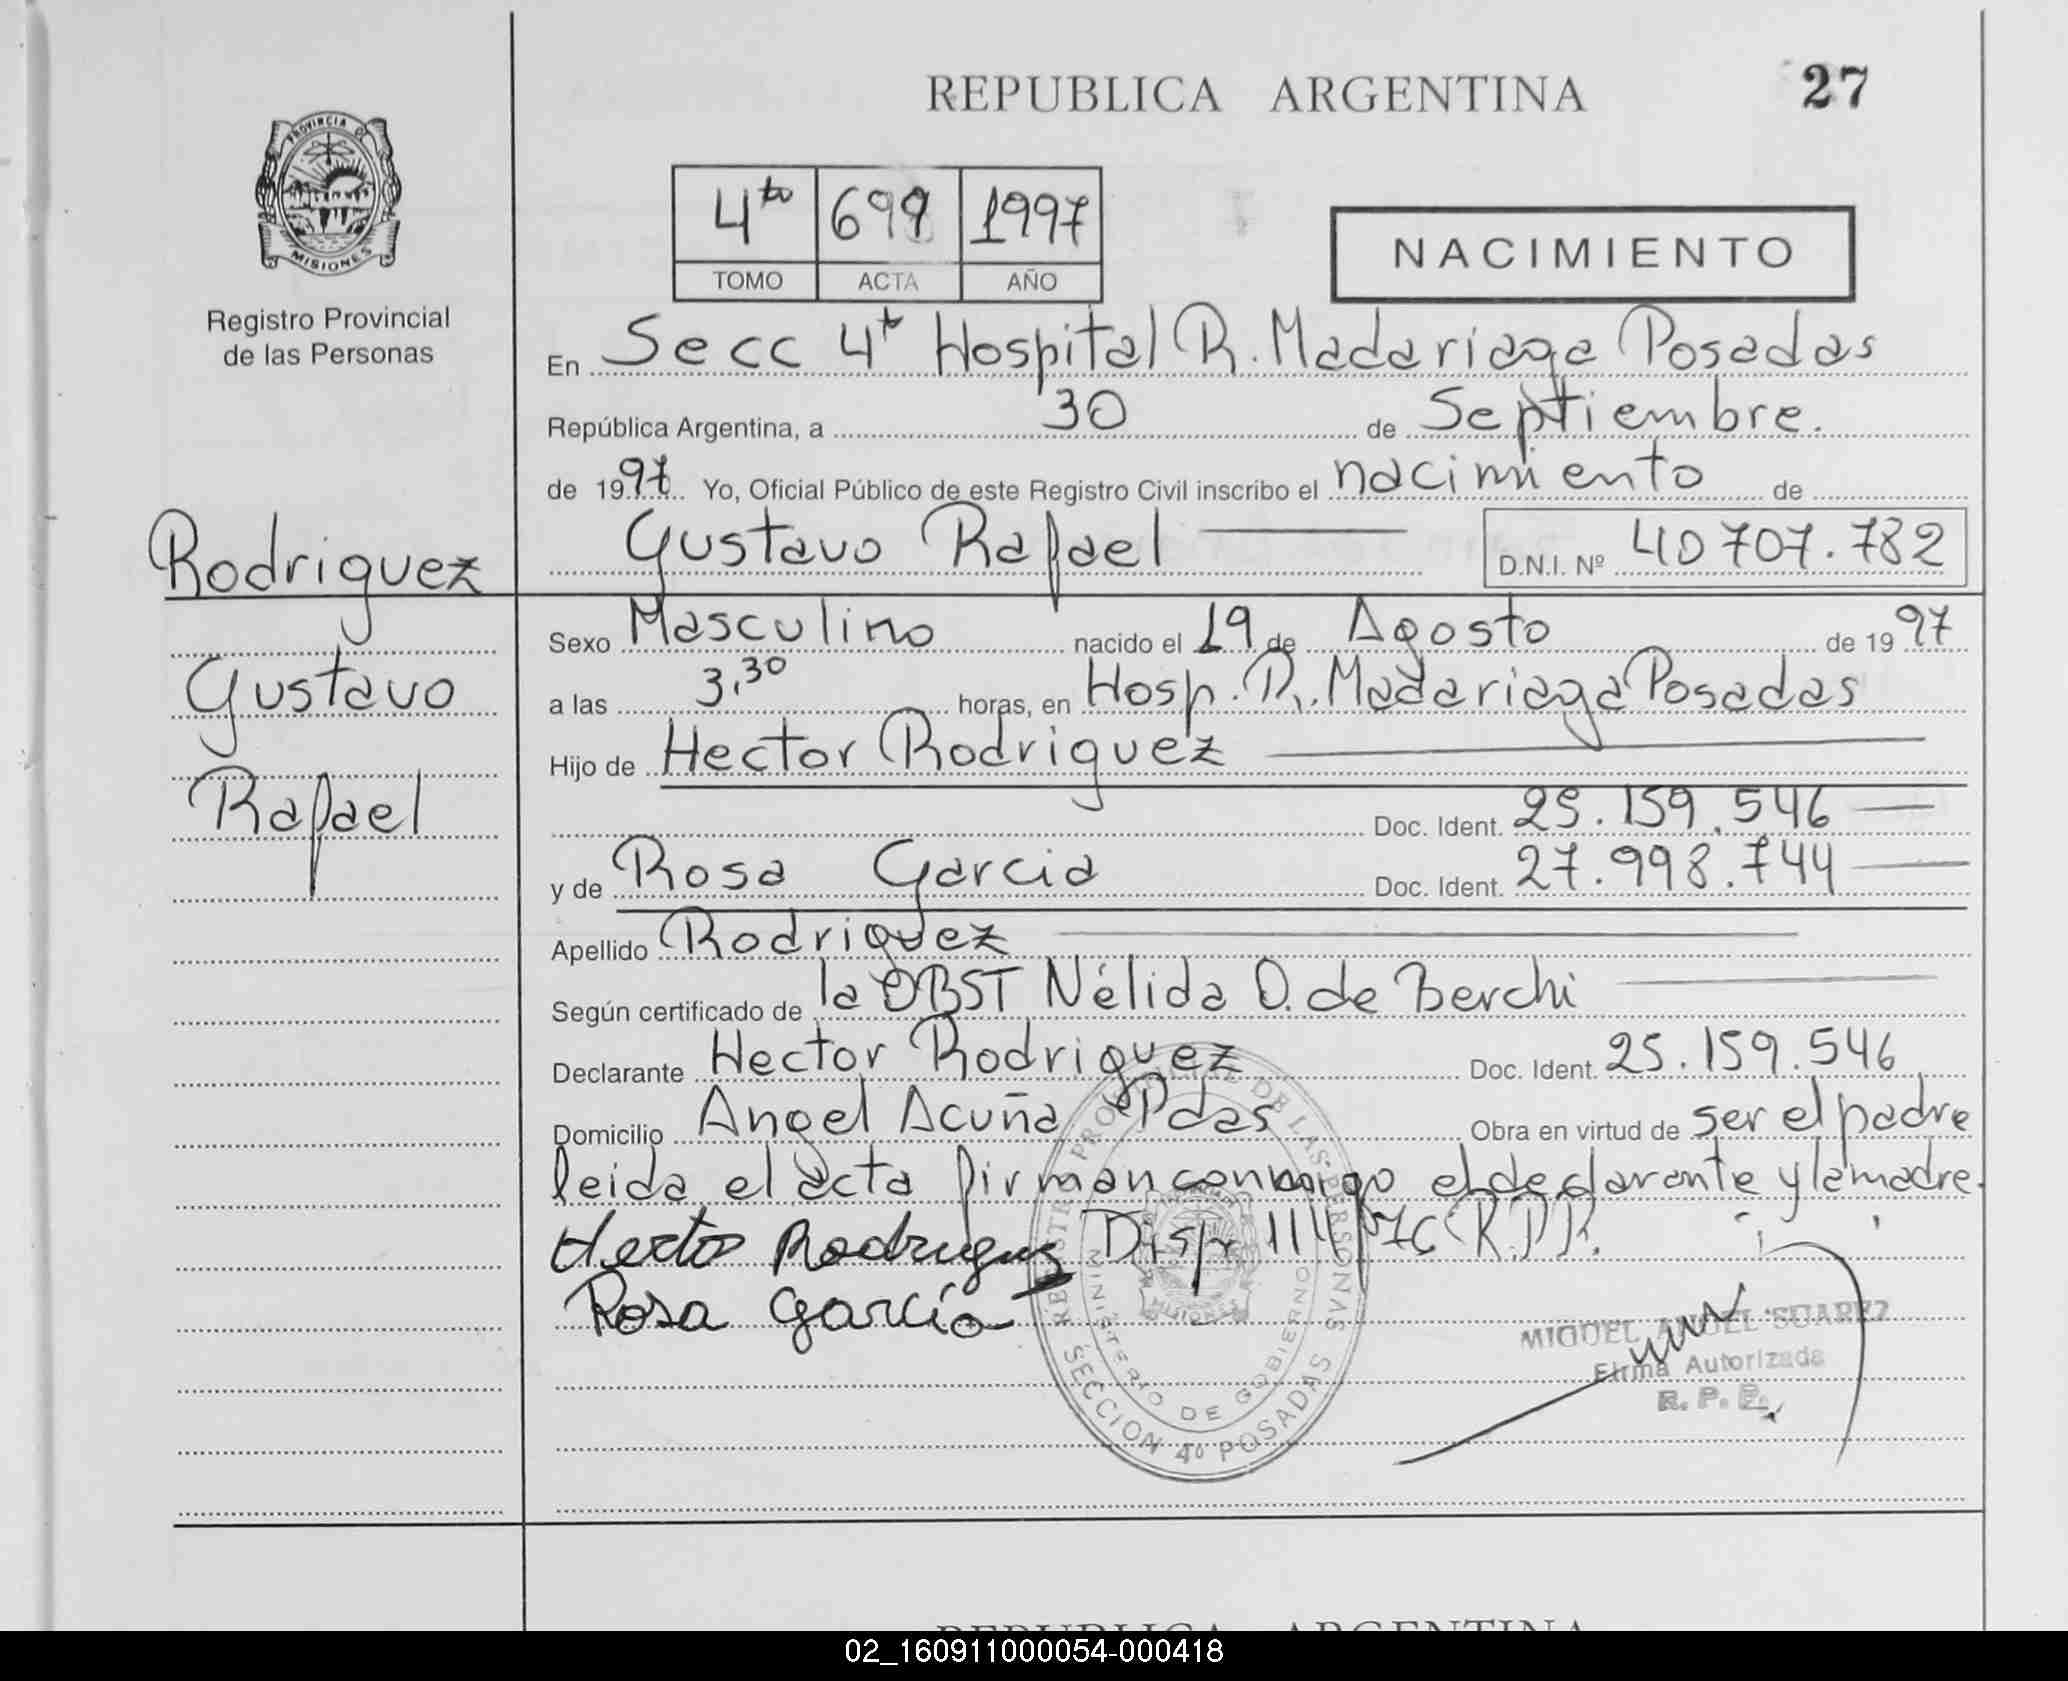 REPUBLICA ARGENTINA
27
PROVINCIA D
MISIONES
Registro Provincial
de las Personas
4to 699 1997
TOMO ACTA AÑO
NACIMIENTO
En Secc 4ta Hospital R. Madariaga Posadas
República Argentina, a 30 de Septiembre.
de 1997 Yo, Oficial Público de este Registro Civil inscribo el nacimiento de
Gustavo Rafael D.N.I. Nº 40707.782
Rodriguez
Gustavo
Rafael
Sexo Masculino nacido el 19 de Agosto de 1997
a las 3,30 horas, en Hosp. R. Madariaga Posadas
Hijo de Hector Rodriguez
Doc. Ident. 25.159.546
y de Rosa Garcia Doc. Ident. 27.998.744
Apellido Rodriguez
Según certificado de la OBST Nélida O. de Berchi
Declarante Hector Rodriguez Doc. Ident. 25.159.546
Domicilio Angel Acuña Pdas Obra en virtud de ser el padre
leida el acta firman conmigo el declarante y la madre.
Hector Rodriguez Disp 114/76 R.P.P.
Rosa García
MIGUEL ANGEL SUAREZ
Firma Autorizada
R. P. P.
MINISTERIO DE GOBIERNO
SECCION 4º POSADAS
REPUBLICA ARGENTINA
02_160911000054-000418